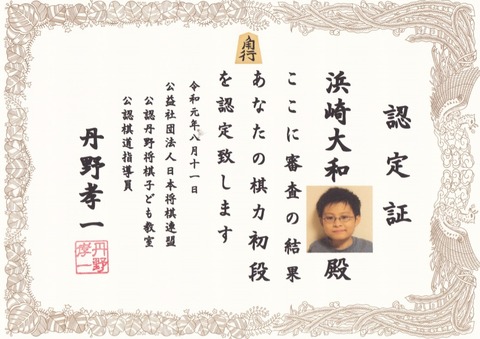 角行
認定証
浜崎大和殿
ここに審査の結果
あなたの棋力初段
を認定致します
令和元年八月十一日
公益社団法人日本将棋連盟
公認丹野将棋子ども教室
公認棋道指導員
丹野孝一
丹野
孝一